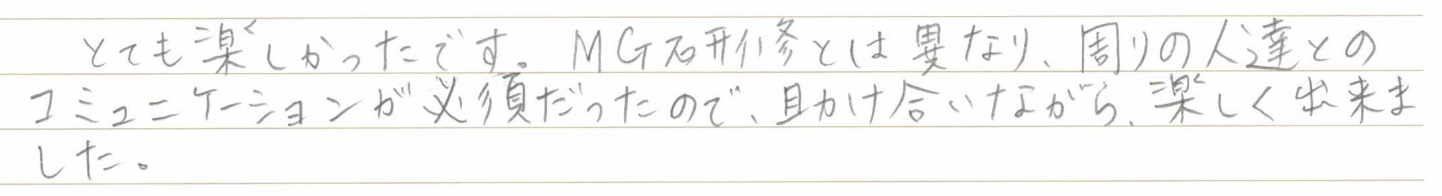 とても楽しかったです。MG研修とは異なり、周りの人達との
コミュニケーションが必須だったので、助け合いながら、楽しく出来ま
した。